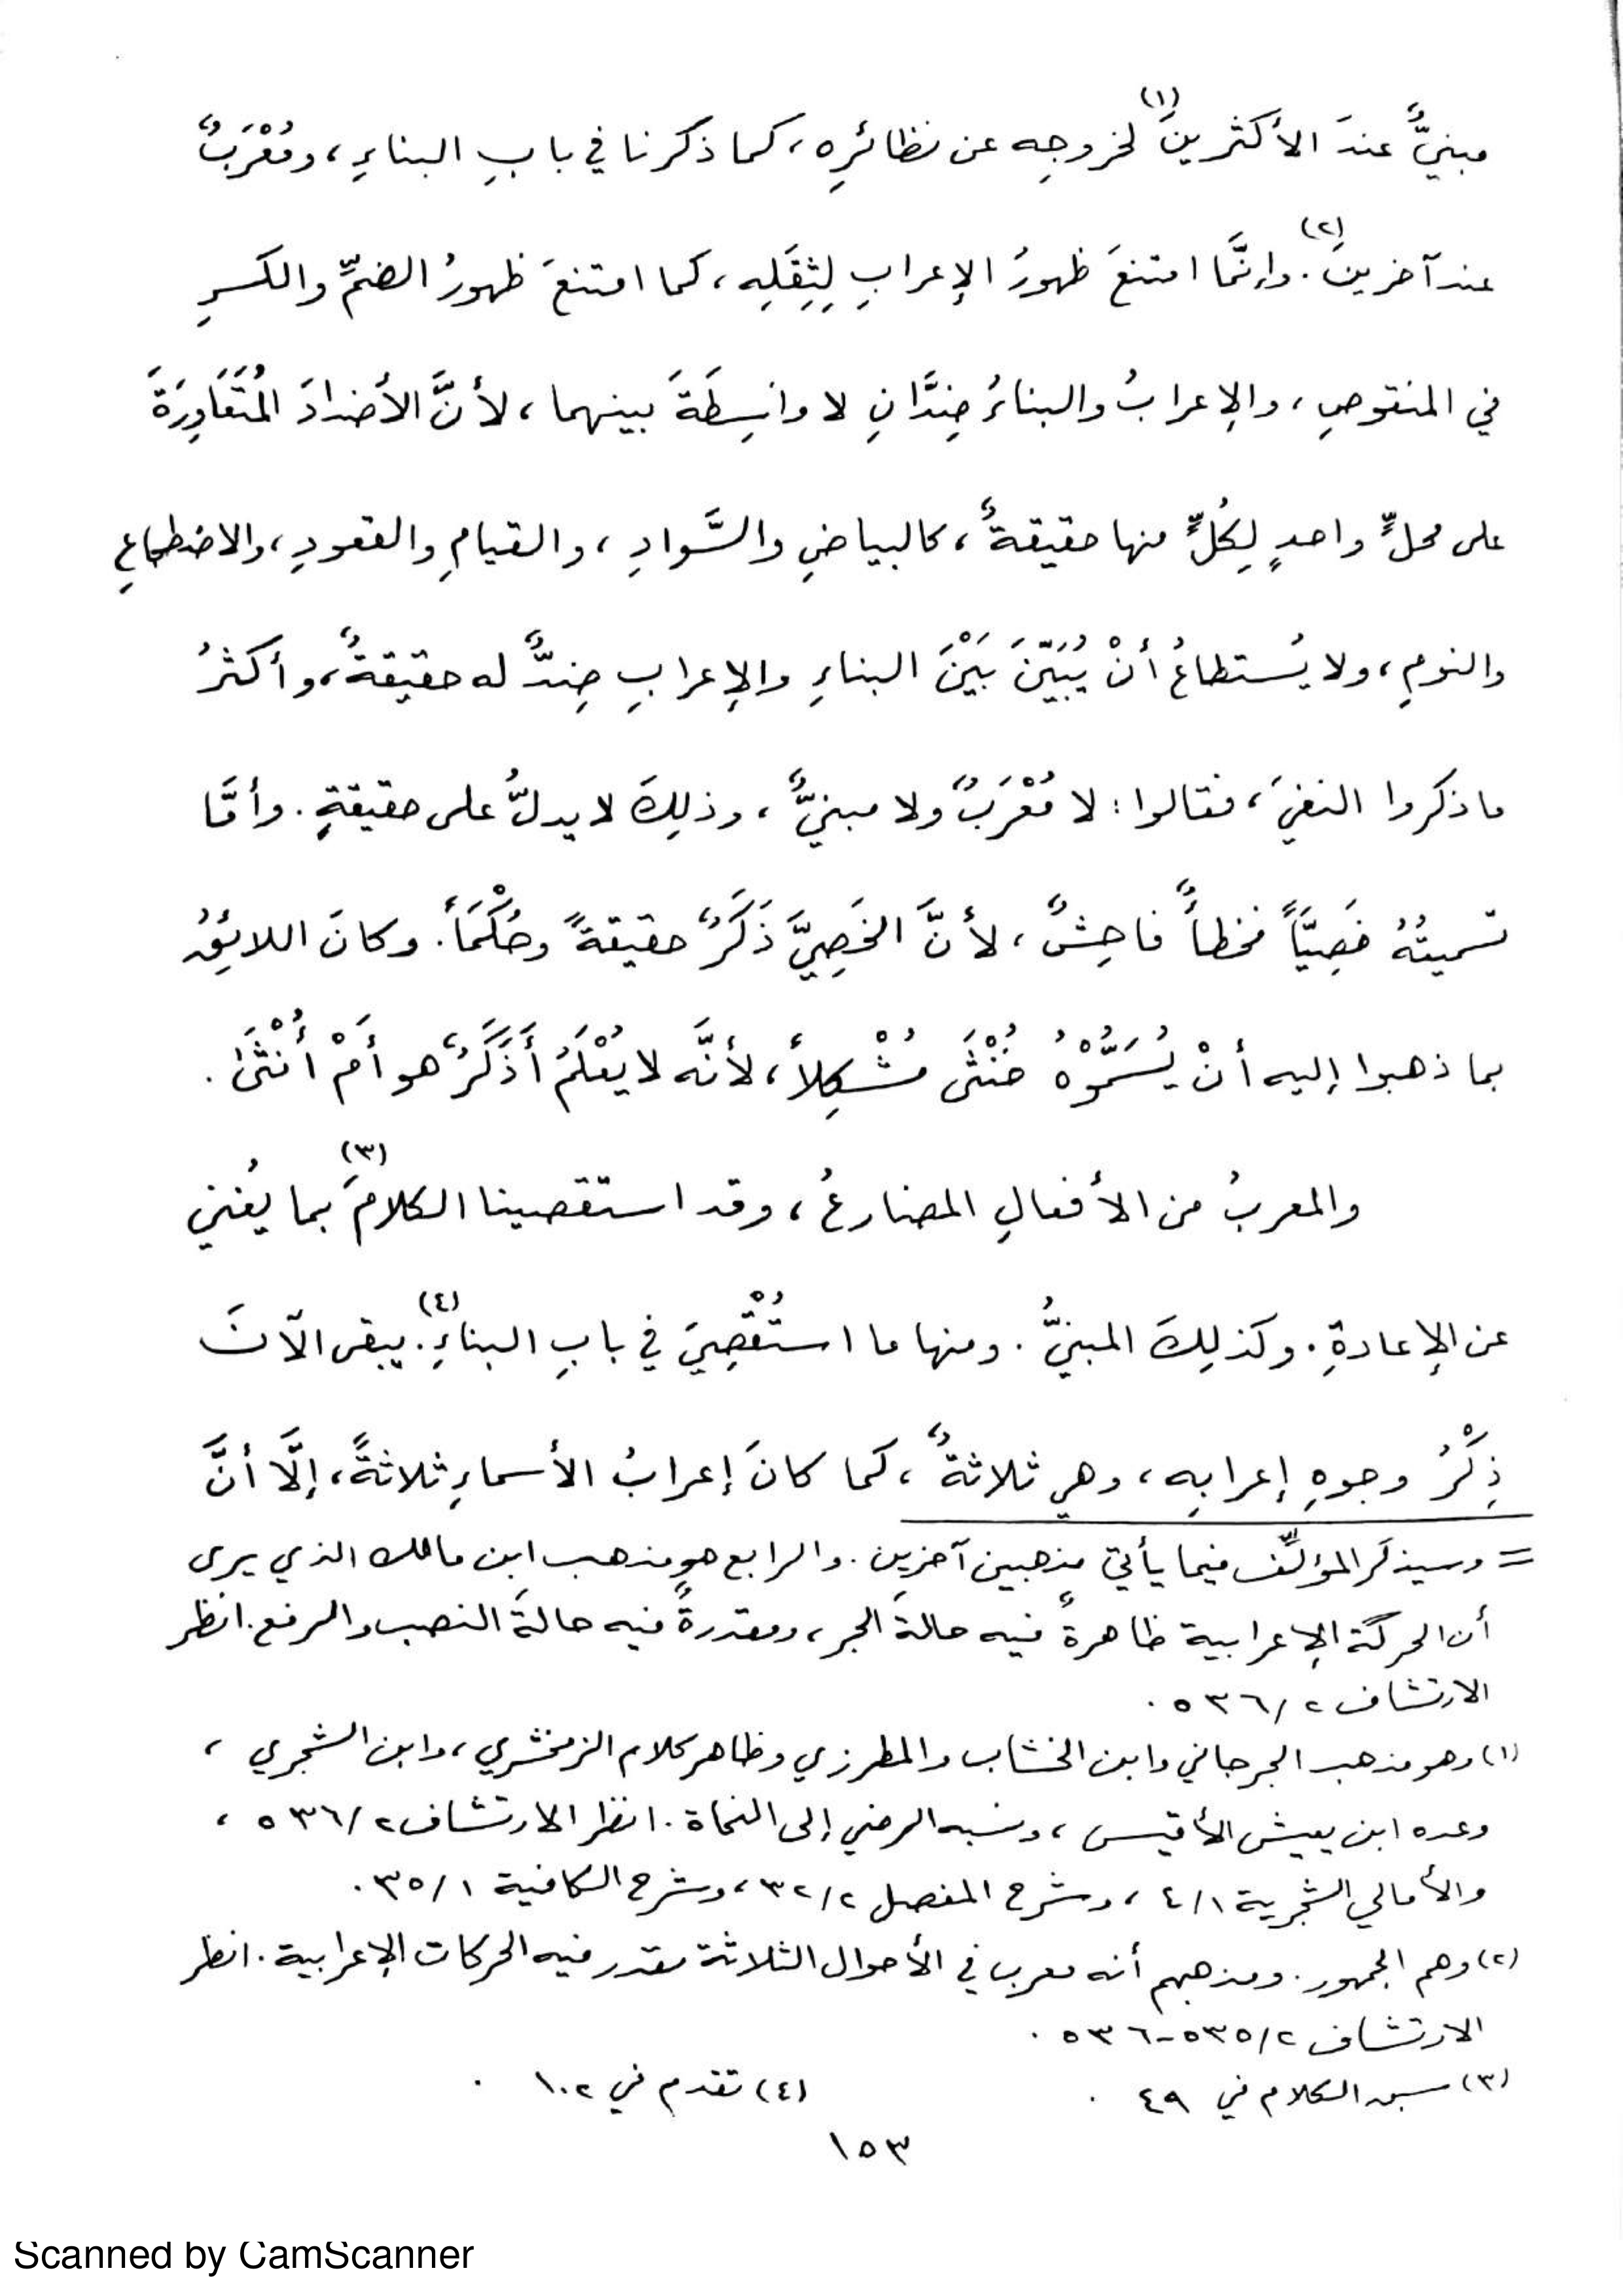 مبنيٌّ عندَ الأكثرينَ(١) لخروجِه عن نظائرِه، كما ذكرنا في بابِ البناءِ، ومُعْرَبٌ
عند آخرينَ(٢). وإنَّما امتنعَ ظهورُ الإعرابِ لِثِقَلِه، كما امتنعَ ظهورُ الضمِّ والكسرِ
في المنقوصِ، والإعرابُ والبناءُ ضِدَّانِ لا واسِطَةَ بينهما، لأنَّ الأضدادَ المُتَعَاوِرَةَ
على محلٍّ واحدٍ لِكُلٍّ منها حقيقةٌ، كالبياضِ والسَّوادِ، والقيامِ والقعودِ، والاضطجاعِ
والنومِ، ولا يُستطاعُ أنْ يُبَيّنَ بَيْنَ البناءِ والإعرابِ ضِدٌّ له حقيقةٌ، وأكثرُ
ما ذكروا النفيَ، فقالوا: لا مُعْرَبٌ ولا مبنيٌّ، وذلِكَ لا يدلُّ على حقيقةٍ. وأمَّا
تسميتُهُ خَصِيَّاً فخطأٌ فاحِشٌ، لأنَّ الخَصِيَّ ذَكَرٌ حقيقةً وحُكْمَاً. وكانَ اللائِقُ
بما ذهبوا إليه أنْ يُسَمُّوْهُ خُنْثَى مُشْكِلاً، لأنَّه لا يُعْلَمُ أَذَكَرٌ هو أَمْ أُنْثَىٰ.
والمعربُ من الأفعالِ المضارعُ، وقد استقصينا الكلامَ(٣) بما يُغني
عن الإعادةِ. وكذلِكَ المبنيُّ. ومنها ما استُقْصِيَ في بابِ البناءِ(٤). يبقى الآنَ
ذِكْرُ وجوهِ إعرابِه، وهي ثلاثةٌ، كما كانَ إعرابُ الأسماءِ ثلاثةً، إلَّا أنَّ
= وسيذكر المؤلِّف فيما يأتي مذهبين آخرين. والرابع هو مذهب ابن مالك الذي يرى
أن الحركة الإعرابية ظاهرةٌ فيه حالةَ الجر، ومقدرةٌ فيه حالةَ النصب والرفع. انظر
الارتشاف ٢/ ٥٣٦ .
(١) وهو مذهب الجرجاني وابن الخشاب والمطرزي وظاهر كلام الزمخشري، وابن الشجري ،
وعده ابن يعيش الأقيس، ونسبه الرضي إلى النحاة. انظر الارتشاف ٢/ ٥٣٦ ،
والأمالي الشجرية ١/ ٤ ، وشرح المفصل ٢/ ٣٢ ، وشرح الكافية ١/ ٣٥ .
(٢) وهم الجمهور. ومذهبهم أنه معرب في الأحوال الثلاثة مقدر فيه الحركات الإعرابية. انظر
الارتشاف ٢/ ٥٣٥-٥٣٦ .
(٣) سبق الكلام في ٤٩ . (٤) تقدم في ١٠٢ .
١٥٣
Scanned by CamScanner